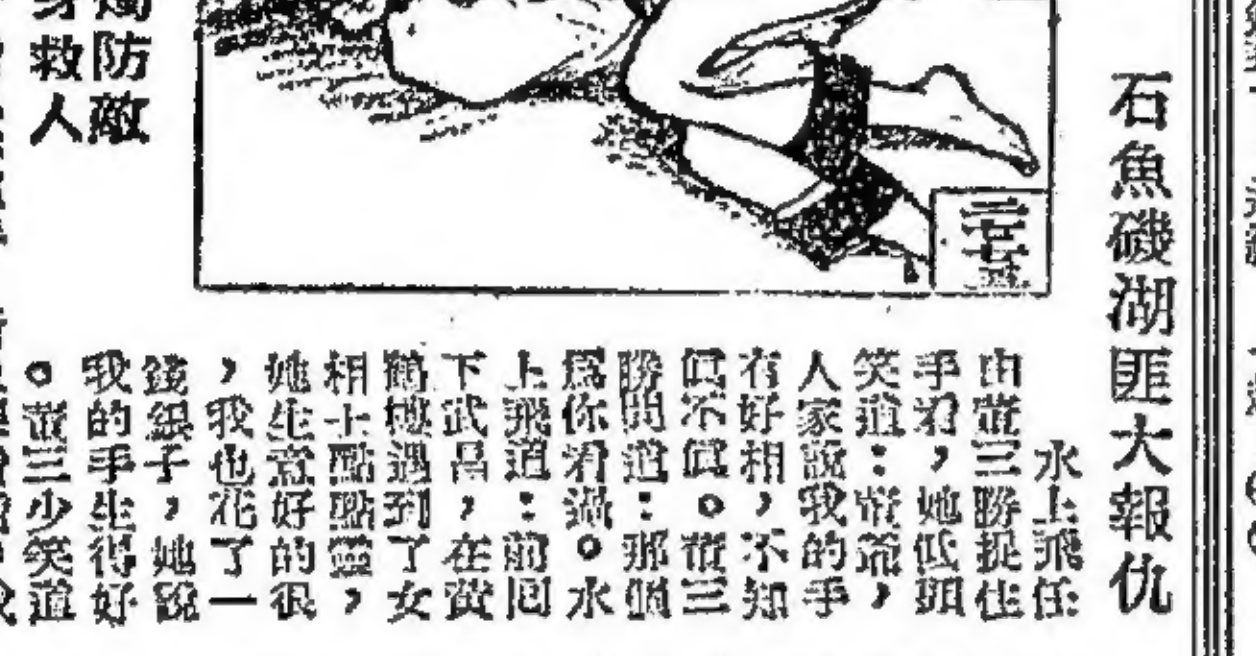 石魚磯湖匪大報仇
水上飛任
由三勝捉住
手看，她低頭
笑道：爺，
人家說我的手
有好相，不知
眞不眞。三
勝問道：那個
爲你看過。水
上飛道：前回
下武昌，在黃
鶴樓遇到了女
相士點點靈，
她生意好的很
，我也花了一
錢銀子，她說
我的手生得好
。三少笑道
防敵
身救人